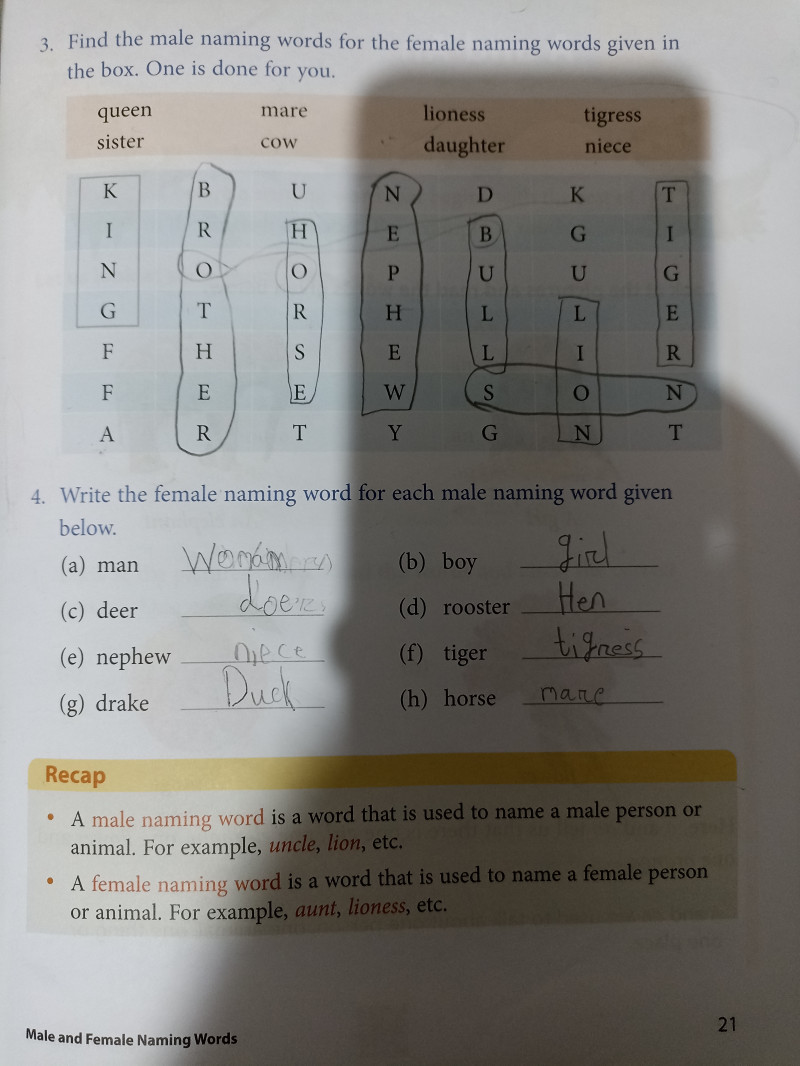 3. Find the male naming words for the female naming words given in
the box. One is done for you.
queen mare lioness tigress
sister cow daughter niece
K B U N D K T
I R H E B G I
N O O P U U G
G T R H L L E
F H S E L I R
F E E W S O N
A R T Y G N T
4. Write the female naming word for each male naming word given
below.
(a) man Woman (b) boy girl
(c) deer doe (d) rooster Hen
(e) nephew niece (f) tiger tigress
(g) drake Duck (h) horse mare
Recap
• A male naming word is a word that is used to name a male person or
animal. For example, uncle, lion, etc.
• A female naming word is a word that is used to name a female person
or animal. For example, aunt, lioness, etc.
Male and Female Naming Words 21